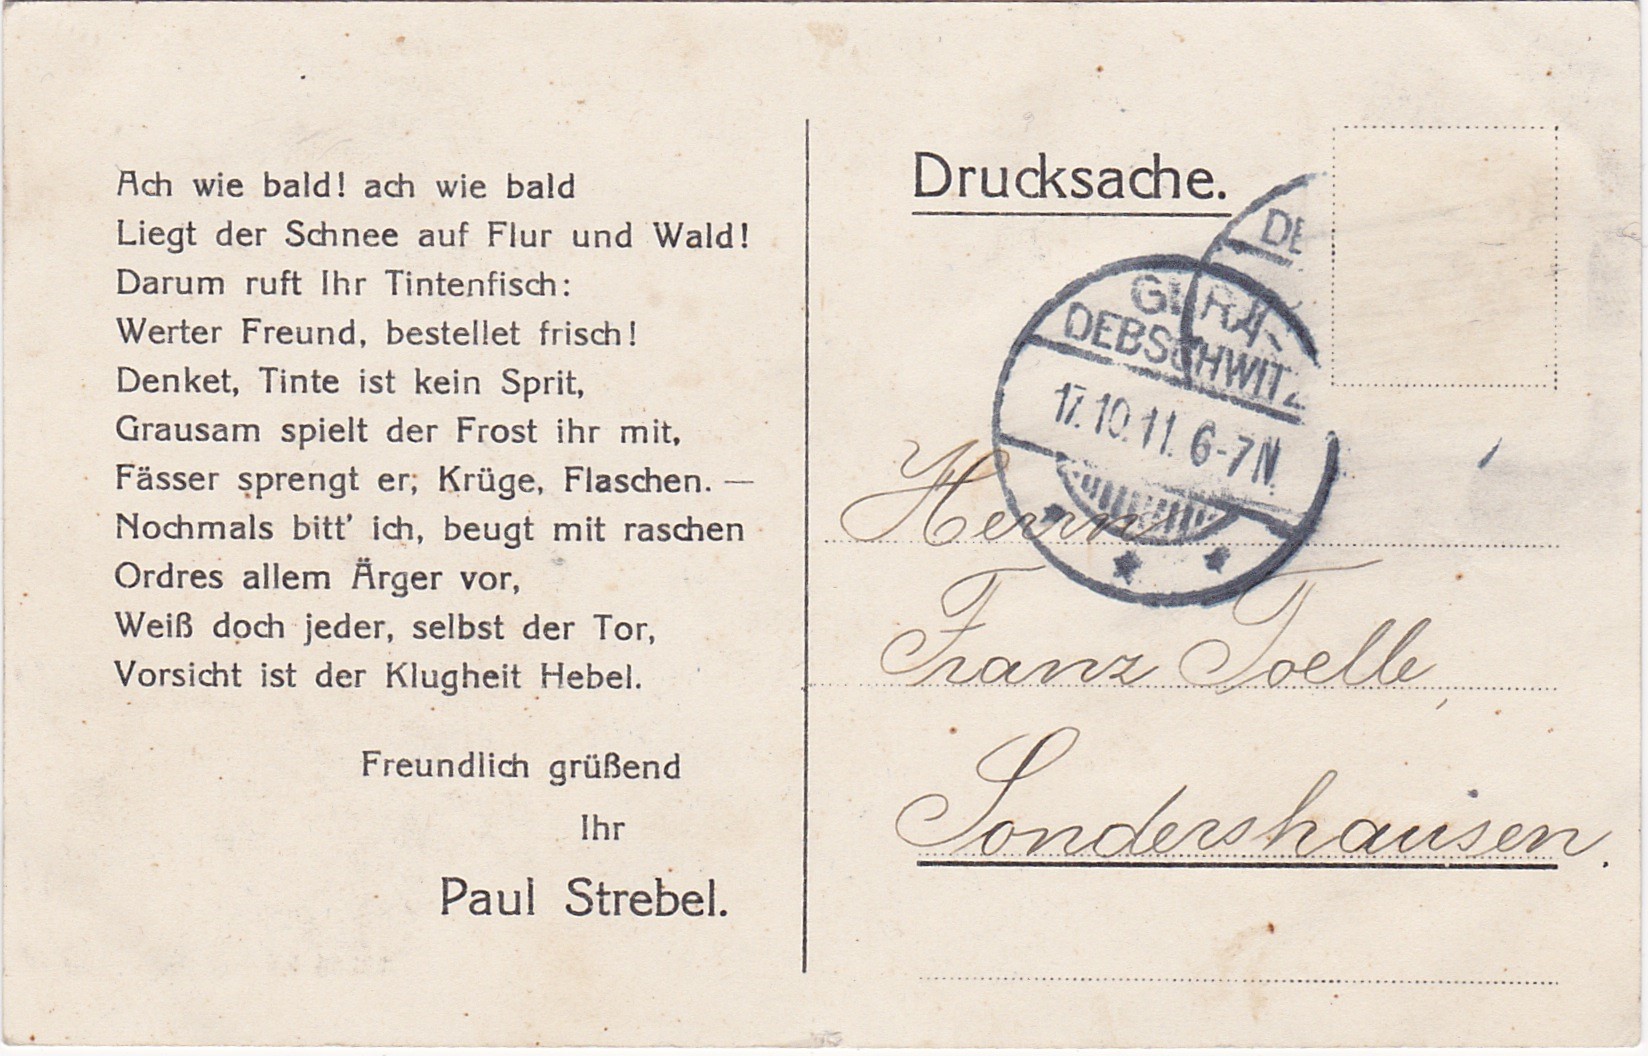 Ach wie bald! ach wie bald
Liegt der Schnee auf Flur und Wald!
Darum ruft Ihr Tintenfisch:
Werter Freund, bestellet frisch!
Denket, Tinte ist kein Sprit,
Grausam spielt der Frost ihr mit,
Fässer sprengt er, Krüge, Flaschen. —
Nochmals bitt' ich, beugt mit raschen
Ordres allem Ärger vor,
Weiß doch jeder, selbst der Tor,
Vorsicht ist der Klugheit Hebel.
Freundlich grüßend
Ihr
Paul Strebel.
Drucksache.
DE
GERA-
DEBSCHWITZ
17.10.11. 6-7N.
Herrn
Franz Toelle,
Sondershausen.